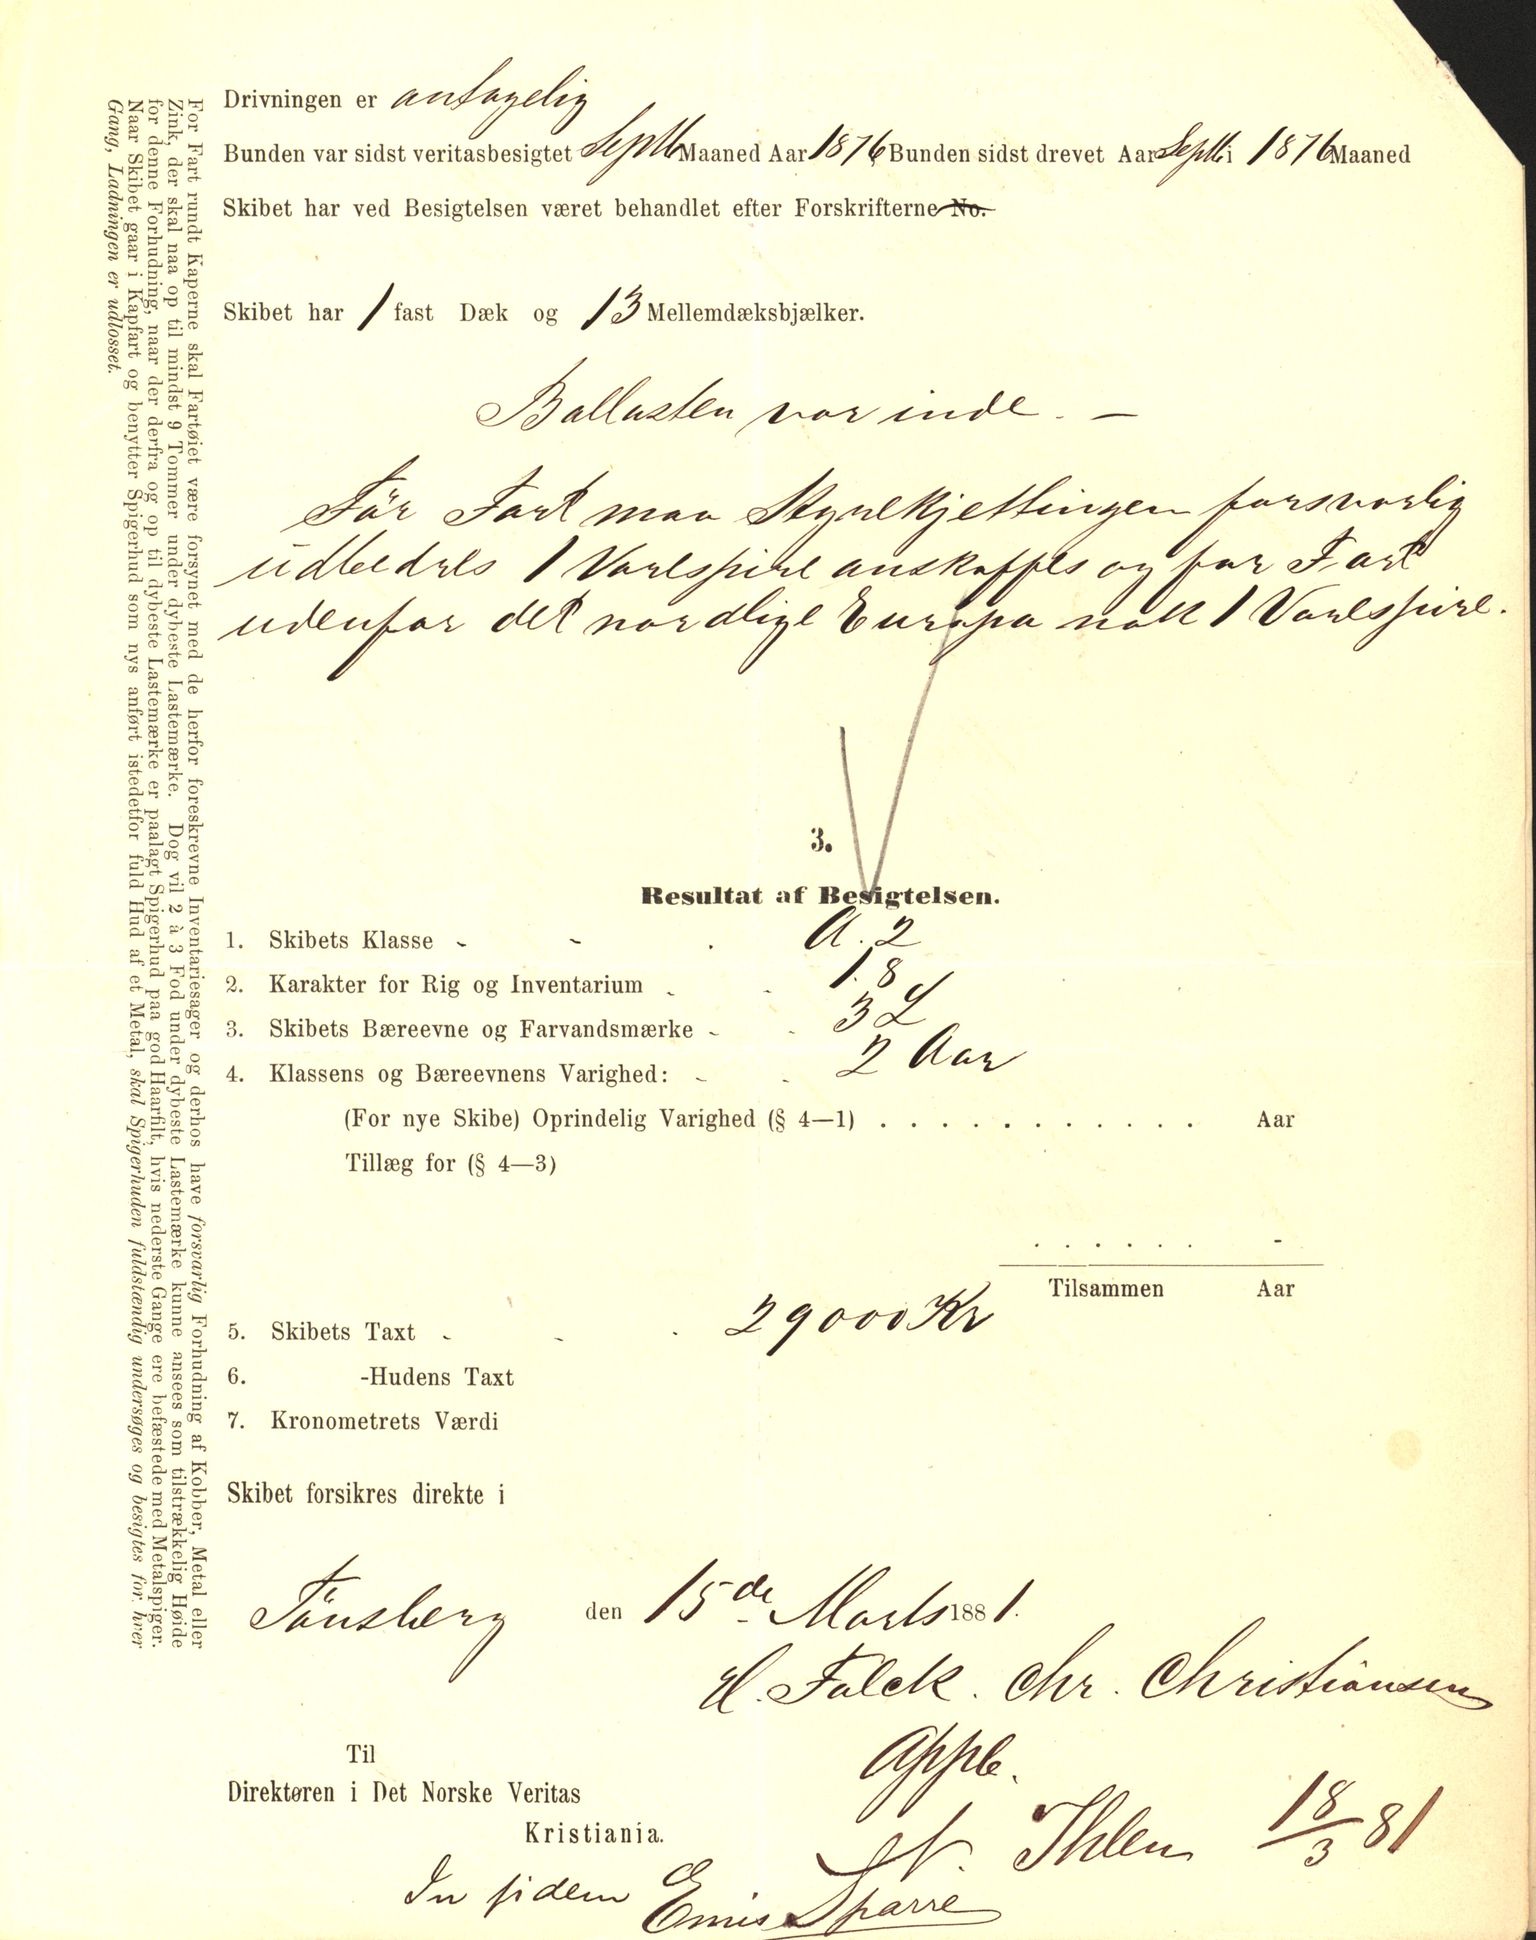 Drivningen er antagelig
Bunden var sidst veritasbesigtet Septb Maaned Aar 1876 Bunden sidst drevet Aar Septb i 1876 Maaned
Skibet har ved Besigtelsen været behandlet efter Forskrifterne No.
Skibet har 1 fast Dæk og 13 Mellemdæksbjælker.
Ballasten var inde. —
Før Fart maa Styrekjettingen forsvarlig
udbedres 1 Varespire anskaffes og for Fart
udenfor det nordlige Europa nok 1 Varespire.
3.
Resultat af Besigtelsen.
1. Skibets Klasse - - . A. 2
2. Karakter for Rig og Inventarium - - 1. 8
3. Skibets Bæreevne og Farvandsmærke - - 3 L
4. Klassens og Bæreevnens Varighed: - - 2 Aar
(For nye Skibe) Oprindelig Varighed (§ 4—1) . . . . . . . . . . . . Aar
Tillæg for (§ 4—3)
. . . . . . -
Tilsammen Aar
5. Skibets Taxt - - . 29000 Kr
6. -Hudens Taxt
7. Kronometrets Værdi
Skibet forsikres direkte i
Tönsberg den 15de Marts 1881.
H. Falck. Chr. Christiansen
Appb.
N. Ihlen 18/3 81
Til
Direktøren i Det Norske Veritas
Kristiania.
In fidem
Emis Sparre
For Fart rundt Kaperne skal Fartøiet være forsynet med de herfor foreskrevne Inventariesager og derhos have forsvarlig Forhudning af Kobber, Metal eller
Zink, der skal naa op til mindst 9 Tommer under dybeste Lastemærke. Dog vil 2 à 3 Fod under dybeste Lastemærke kunne ansees som tilstrækkelig Høide
for denne Forhudning, naar der derfra og op til dybeste Lastemærke er paalagt Spigerhud paa god Haarfilt, hvis nederste Gange ere befæstede med Metalspiger.
Naar Skibet gaar i Kapfart og benytter Spigerhud som nys anført istedetfor fuld Hud af et Metal, skal Spigerhuden fuldstændig undersøges og besigtes for hver
Gang, Ladningen er udlosset.